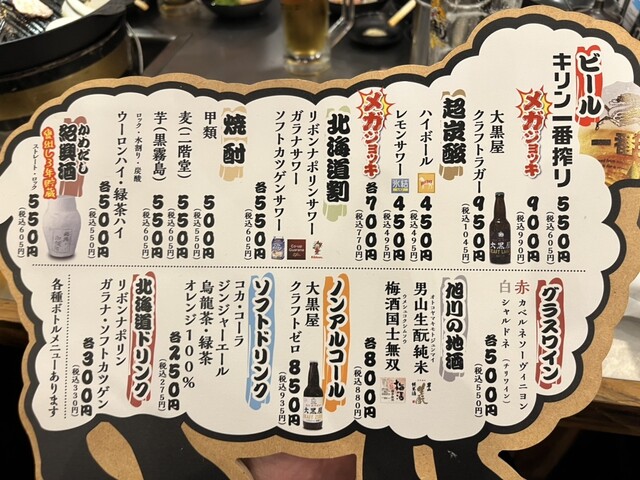 ビール
キリン一番搾り 550円
(税込605円)
メガジョッキ 900円
(税込990円)
大黒屋
クラフトラガー 950円
(税込1045円)
超炭酸
ハイボール 450円
(税込495円)
レモンサワー 450円
(税込495円)
メガジョッキ 各700円
(税込770円)
北海道割
リボンナポリンサワー
ガラナサワー
ソフトカツゲンサワー
各550円
(税込605円)
焼酎
甲類 500円
(税込550円)
麦(二階堂) 550円
(税込605円)
芋(黒霧島) 550円
(税込605円)
ロック・水割り・炭酸
ウーロンハイ・緑茶ハイ
各550円
(税込605円)
かめだし
紹興酒
蔵出し3年貯蔵
ストレート・ロック 550円
(税込605円)
グラスワイン
赤 カベルネソーヴィニヨン
白 シャルドネ (チリワイン)
各500円
(税込550円)
旭川の地酒
男山生酛純米
梅酒国士無双
各800円
(税込880円)
ノンアルコール
大黒屋
クラフトゼロ 850円
(税込935円)
ソフトドリンク
コカ・コーラ
ジンジャーエール
烏龍茶・緑茶
オレンジ100%
各250円
(税込275円)
北海道ドリンク
リボンナポリン
ガラナ・ソフトカツゲン
各300円
(税込330円)
各種ボトルメニューあります